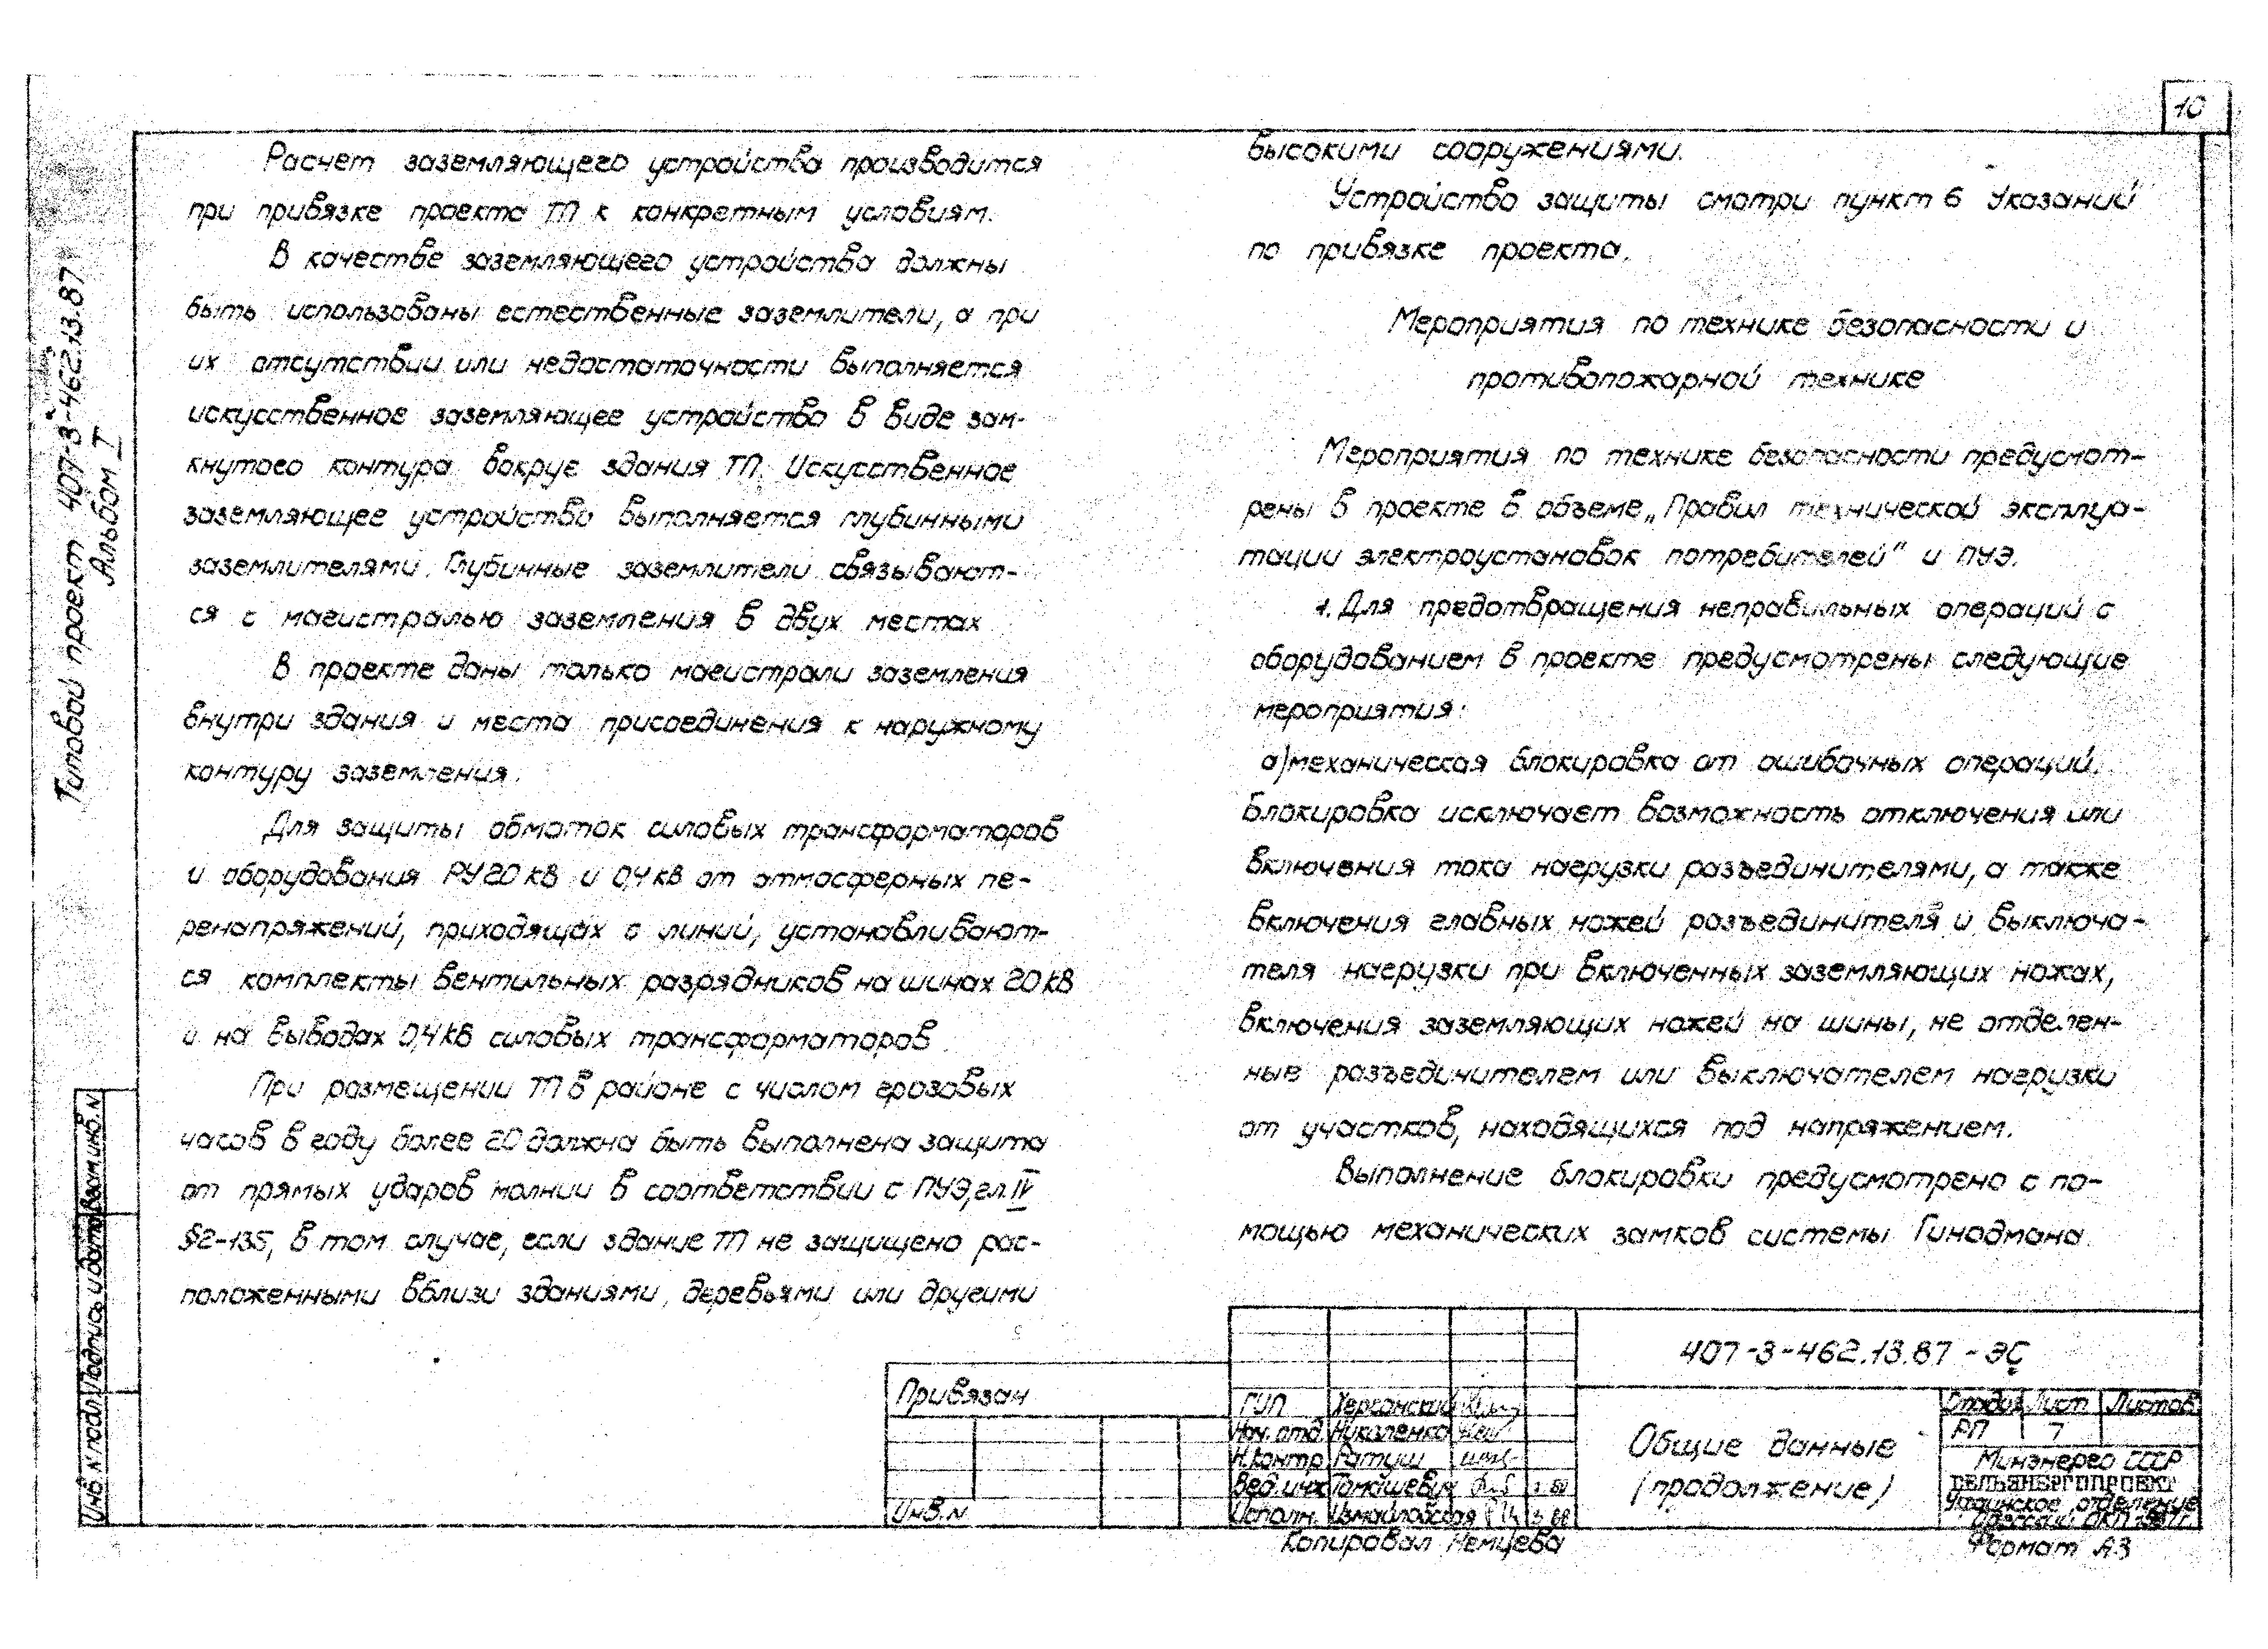 10
Типовой проект 407-3-462.13.87
Альбом I
Расчет заземляющего устройства производится
при привязке проекта ТП к конкретным условиям.
В качестве заземляющего устройства должны
быть использованы естественные заземлители, а при
их отсутствии или недостаточности выполняется
искусственное заземляющее устройство в виде зам-
кнутого контура вокруг здания ТП. Искусственное
заземляющее устройство выполняется глубинными
заземлителями. Глубинные заземлители связывают-
ся с магистралью заземления в двух местах
В проекте даны только магистрали заземления
внутри здания и места присоединения к наружному
контуру заземления.
Для защиты обмоток силовых трансформаторов
и оборудования РУ20 кВ и 0,4 кВ от атмосферных пе-
ренапряжений, приходящих с линий, устанавливают-
ся комплекты вентильных разрядников на шинах 20 кВ
и на выводах 0,4 кВ силовых трансформаторов.
При размещении ТП в районе с числом грозовых
часов в году более 20 должна быть выполнена защита
от прямых ударов молнии в соответствии с ПУЭ, гл. IV
§2-135, в том случае, если здание ТП не защищено рас-
положенными вблизи зданиями, деревьями или другими
высокими сооружениями.
Устройство защиты смотри пункт 6 Указаний
по привязке проекта.
Мероприятия по технике безопасности и
противопожарной технике
Мероприятия по технике безопасности предусмот-
рены в проекте в объеме „Правил технической эксплуа-
тации электроустановок потребителей" и ПУЭ.
1. Для предотвращения неправильных операций с
оборудованием в проекте предусмотрены следующие
мероприятия:
а) механическая блокировка от ошибочных операций.
Блокировка исключает возможность отключения или
включения тока нагрузки разъединителями, а также
включения главных ножей разъединителя и выключа-
теля нагрузки при включенных заземляющих ножах,
включения заземляющих ножей на шины, не отделен-
ные разъединителем или выключателем нагрузки
от участков, находящихся под напряжением.
Выполнение блокировки предусмотрено с по-
мощью механических замков системы Гинодмана.
Взам.инв.N
Подпись и дата
Инв.N подл.
Привязан
Инв.N
ГИП Херсонский
Нач.отд. Николенко
Н.контр Ратуш
Вед.инж Томашевич
Исполн. Измайловская
407-3-462.13.87 - ЭС
Общие данные
(продолжение)
Стадия Лист Листов
РП 7
Минэнерго СССР
СЕЛЬЭНЕРГОПРОЕКТ
Украинское отделение
Копировал Немцева
Формат А3